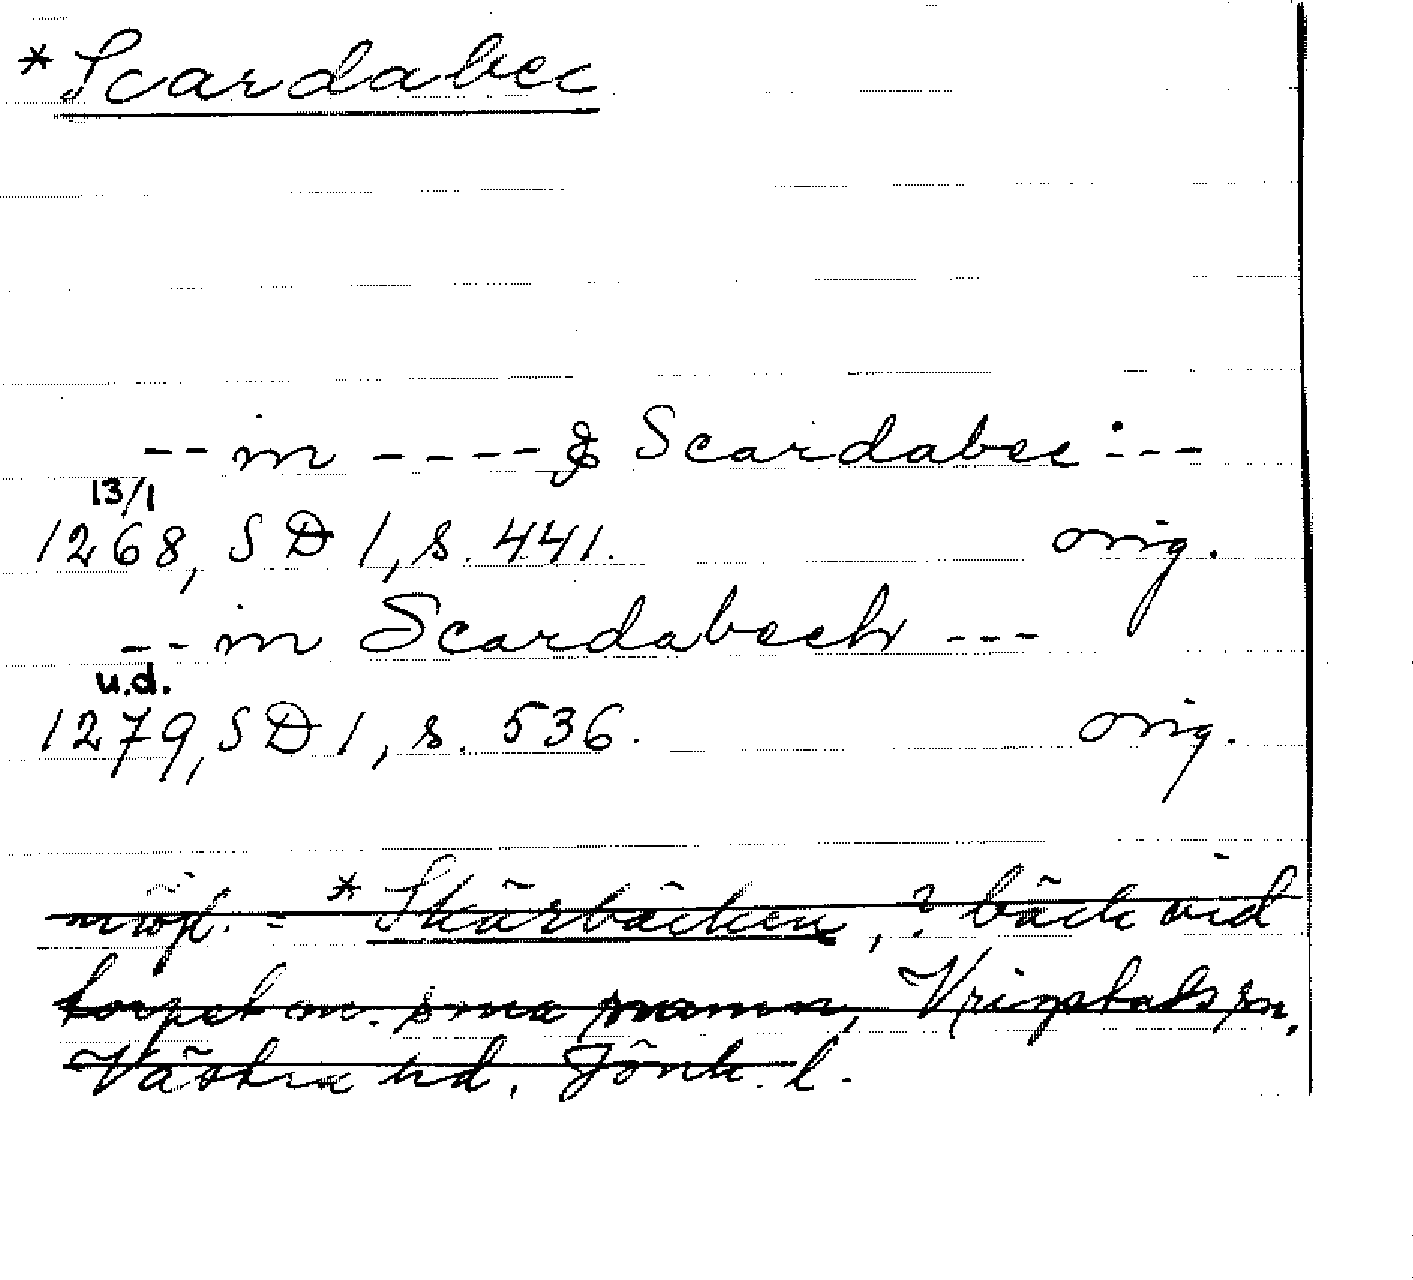 *Scardabec
-- in ---- & Scardabec ---
13/1
1268, SD 1, s. 441. orig.
-- in Scardabech ---
u.d.
1279, SD 1, s. 536. orig.
möjl. = *Skärbäcken, ? bäck vid
torpet m. sma namn, Vrigstads sn,
Västra hd, Jönk. l.